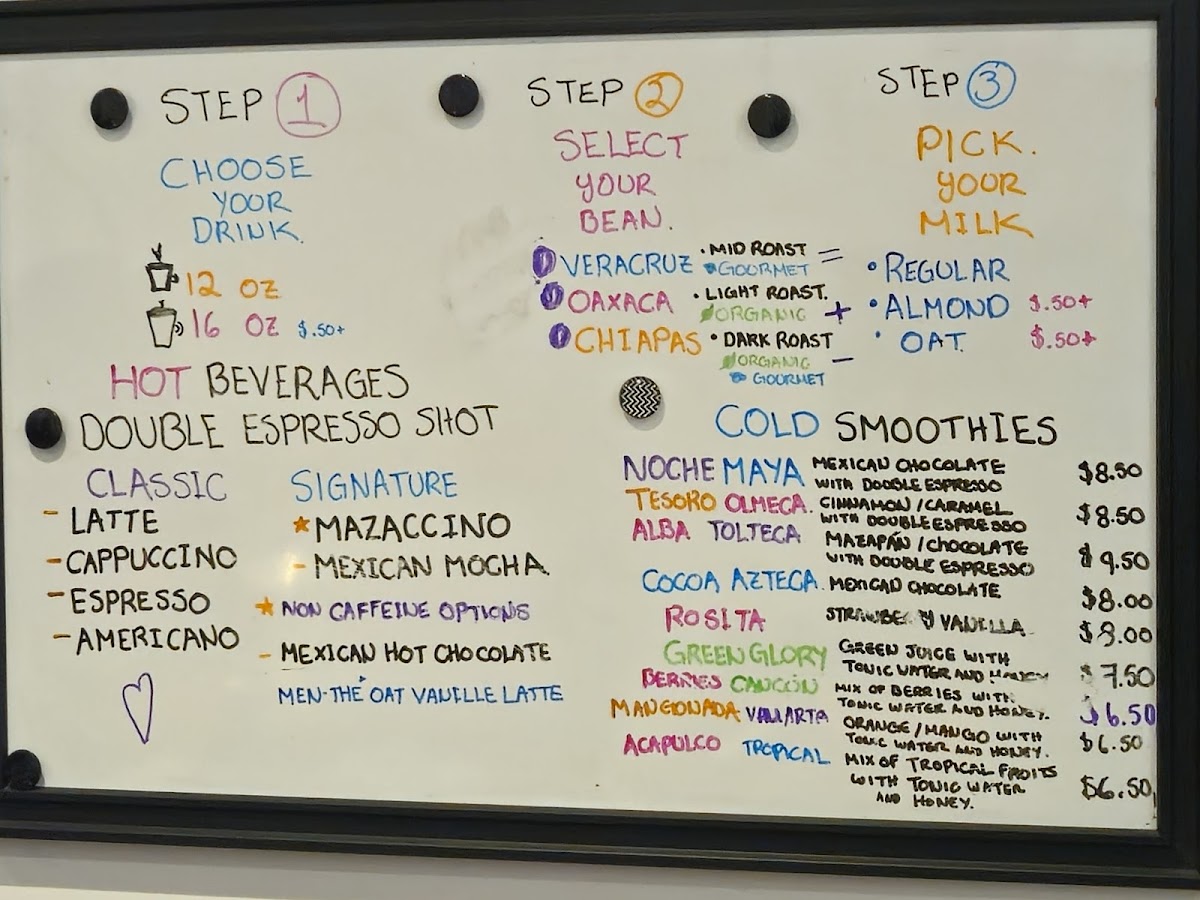 STEP 1
CHOOSE
YOUR
DRINK.
12 OZ
16 OZ $.50+
HOT BEVERAGES
DOUBLE ESPRESSO SHOT
CLASSIC
- LATTE
- CAPPUCCINO
- ESPRESSO
- AMERICANO
SIGNATURE
★ MAZACCINO
- MEXICAN MOCHA
★ NON CAFFEINE OPTIONS
- MEXICAN HOT CHOCOLATE
MEN-THÉ OAT VANILLE LATTE
STEP 2
SELECT
YOUR
BEAN.
VERACRUZ • MID ROAST =
GOURMET
OAXACA • LIGHT ROAST.
ORGANIC +
CHIAPAS • DARK ROAST
ORGANIC -
GOURMET
STEP 3
PICK.
YOUR
MILK
• REGULAR
• ALMOND $.50+
• OAT. $.50+
COLD SMOOTHIES
NOCHE MAYA MEXICAN CHOCOLATE
WITH DOUBLE ESPRESSO $8.50
TESORO OLMECA. CINNAMON / CARAMEL
WITH DOUBLE ESPRESSO $8.50
ALBA TOLTECA MAZAPÁN / CHOCOLATE
WITH DOUBLE ESPRESSO $9.50
COCOA AZTECA. MEXICAN CHOCOLATE $8.00
ROSITA VANILLA $8.00
GREEN GLORY GREEN JUICE WITH
TONIC WATER AND HONEY $7.50
BERRIES CANCÚN MIX OF BERRIES WITH
TONIC WATER AND HONEY. $6.50
MANGONADA VALLARTA ORANGE / MANGO WITH
TONIC WATER AND HONEY. $6.50
ACAPULCO TROPICAL MIX OF TROPICAL FRUITS
WITH TONIC WATER
AND HONEY. $6.50